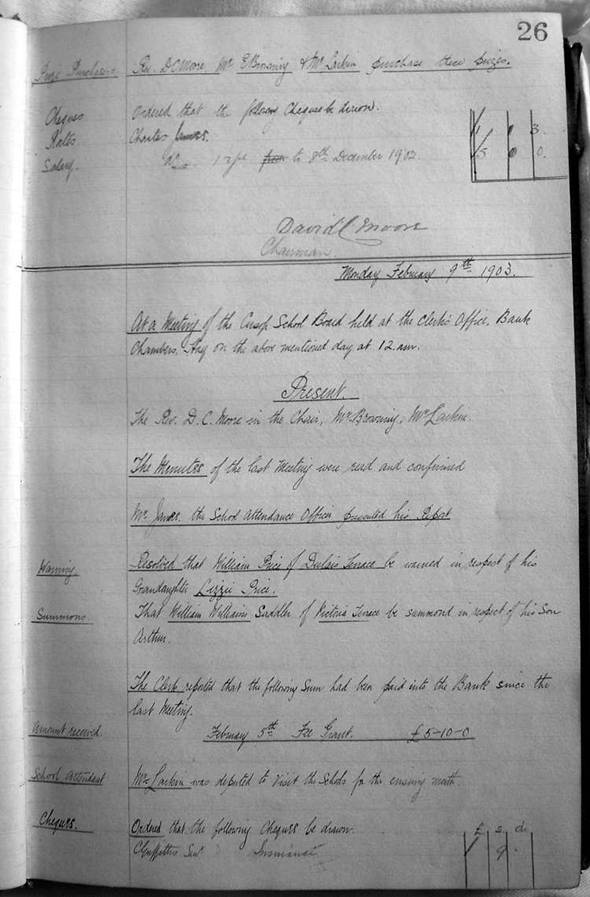 26
Prize Purchasers. Rev. D. C. Moore, Mr E Browning & Mr Larkin purchase these prizes.
Cheques Ordered that the following Cheques be drawn.
Rates Charles James. 1 1 3.
Salary. Do 1 to 8th December 1902. 15 0 0.
David C Moore
Chairman
Monday February 9th 1903.
At a Meeting of the Cusop School Board held at the Clerks Office, Bank
Chambers, Hay on the above mentioned day at 12. am.
Present.
The Rev. D. C. Moore in the Chair, Mr Browning, Mr Larkin.
The Minutes of the last Meeting were read and confirmed
Mr James, the School Attendance Officer presented his Report
Warning. Resolved that William Price of Dulais Terrace be warned in respect of his
Grandaughter Lizzie Price.
Summons. That William Williams Saddler of Victoria Terrace be summond in respect of his Son
Arthur.
The Clerk reported that the following Sum had been paid into the Bank since the
last Meeting.
Amount received. February 5th Fee Grant. £5-10-0
School Attendant Mr Larkin was deputed to visit the Schools for the ensuing month.
Cheques. Ordered that the following Cheques be drawn. £ s. d.
Griffiths Insurance 1 9